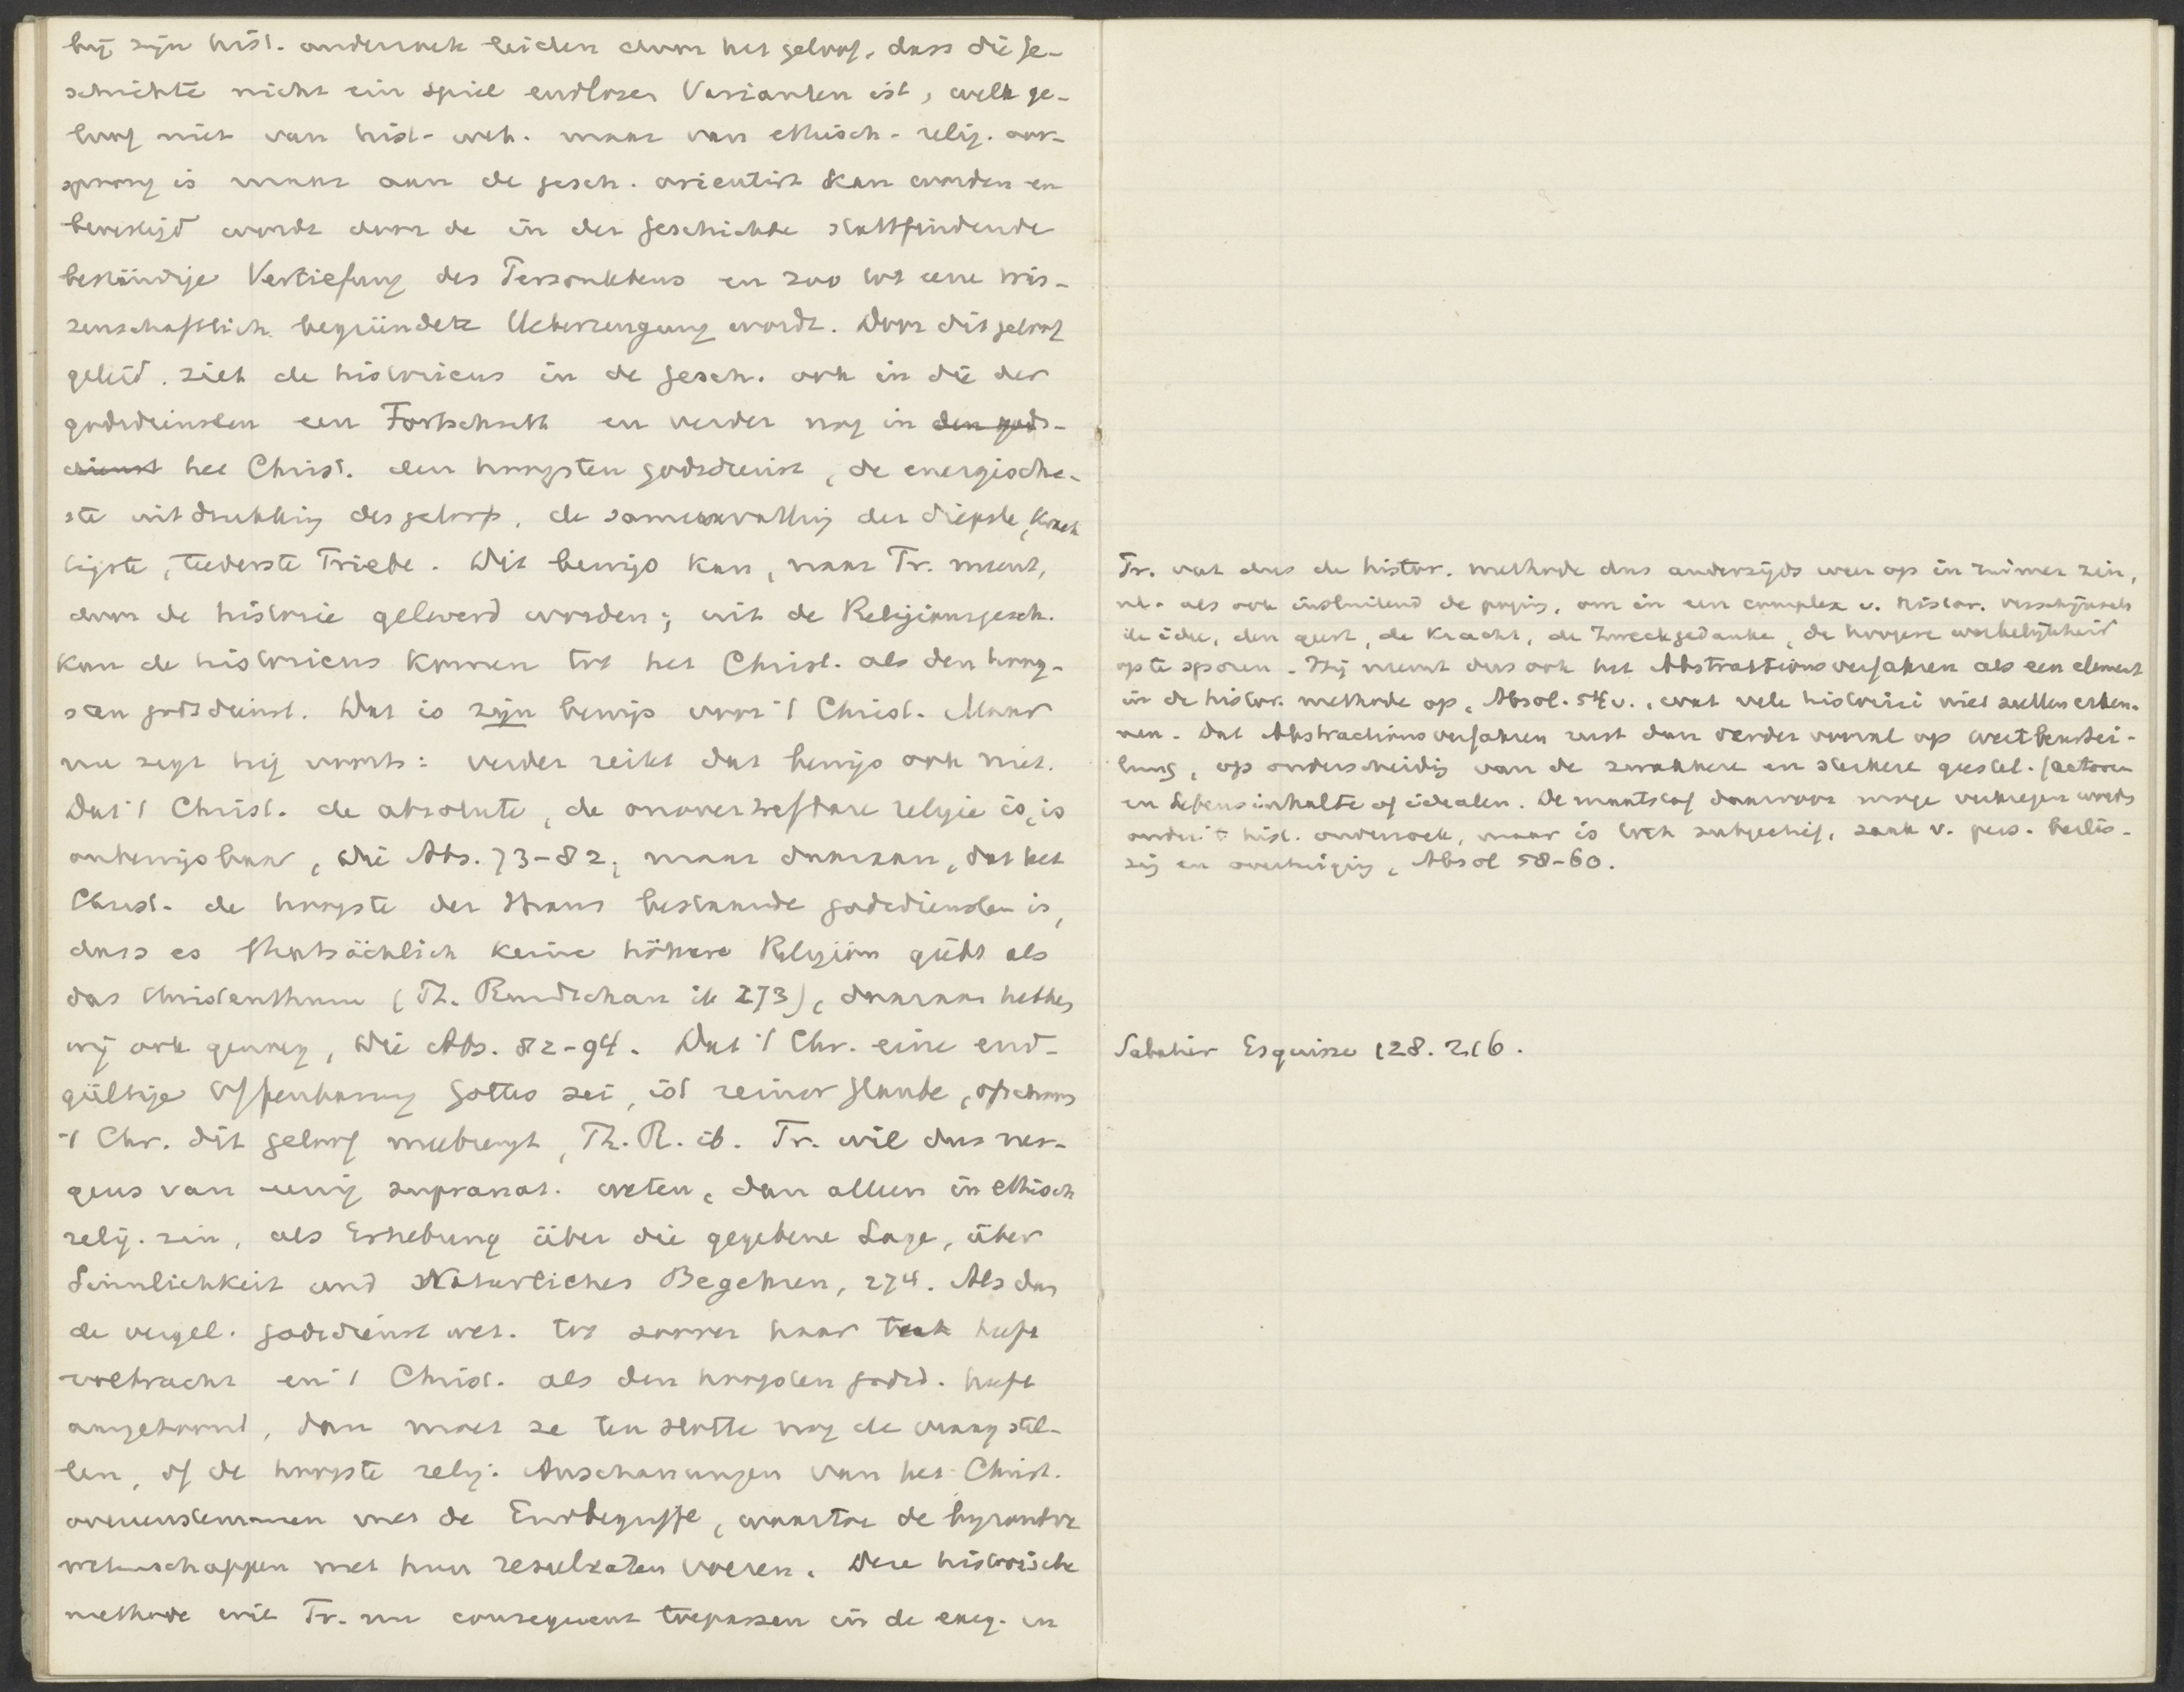 hij zijn hist. onderzoek leiden door het geloof, dass die Ge-
schichte nicht ein Spiel endloser Varianten ist, welk ge-
loof niet van hist-wet. maar van ethisch-relig. oor-
sprong is maar aan de gesch. orientirt kan worden en
bevestigd wordt door de in der Geschichte stattfindende
beständige Vertiefung des Personlebens en zoo tot eene wis-
senschaftlich begründete Ueberzeugung wordt. Door dit geloof
geleid, ziet de historicus in de gesch. ook in die der
godsdiensten een Fortschritt en verder nog in den gods-
dienst het Christ. den hoogsten godsdienst, de energische-
ste uitdrukking des geloofs, de samenvatting der diepste, krach
tigste, teederste Triebe. Dit bewijs kan, naar Tr. meent,
door de historie geleverd worden; uit de Religionsgesch.
kan de historicus komen tot het Christ. als den hoog-
sten godsdienst. Dat is zijn bewijs voor 't Christ. Maar
nu zegt hij voorts: verder reikt dat bewijs ook niet.
Dat 't Christ. de absolute, de onovertrefbare religie is, is
onbewijsbaar, die Abs. 73-82; maar daaraan, dat het
Christ. de hoogste der thans bestaande godsdiensten is,
dass es thatsächlich keine höhere Religion giebt als
das Christenthum (Th. Rundschau ib 273), daaraan hebben
wij ook genoeg, Die Abs. 82-94. Dat 't Chr. eine end-
gültige Offenbarung Gottes sei, ist reiner Glaube, ofschoon
't Chr. dit geloof meebrengt, Th. R. ib. Tr. wil dus ner-
gens van eenig supranat. weten, dan alleen in ethisch
relig. zin, als Erhebung über die gegebene Lage, über
Sinnlichkeit und Natürliches Begehren, 274. Als dan
de vergel. godsdienst wet. tot zoover haar taak heeft
volbracht en 't Christ. als den hoogsten godsd. heeft
aangetoond, dan moet ze ten slotte nog de vraag stel-
len, of de hoogste relig. Anschauungen van het Christ.
overeenstemmen met de Endbegriffe, waartoe de byzondere
wetenschappen met hun resultaten voeren. Deze historische
methode wil Tr. nu consequent toepassen in de exeg. en
Tr. vat dus de histor. methode dus anderzijds weer op in ruimer zin,
nl. als ook insluitend de poging, om in een complex v. histor. verschijnsels
de idee, den geest, de kracht, de Zweckgedanke, de hoogere werkelijkheid
op te sporen. Hij neemt dus ook het Abstraktionsverfahren als een element
in de histor. methode op, Absol. 54 v., wat vele historici niet zullen erken-
nen. Dat Abstractionsverfahren rust dan verder vooral op Wertbeurtei-
lung, op onderscheidig van de zwakkere en sterkere geestel. factoren
en Lebensinhalte of idealen. De maatstaf daarvoor moge verkregen worden
onder 't hist. onderzoek, maar is toch subjectief, zaak v. pers. beslis-
sing en overtuiging, Absol 58-60.
Sabatier Esquisse 128. 216.